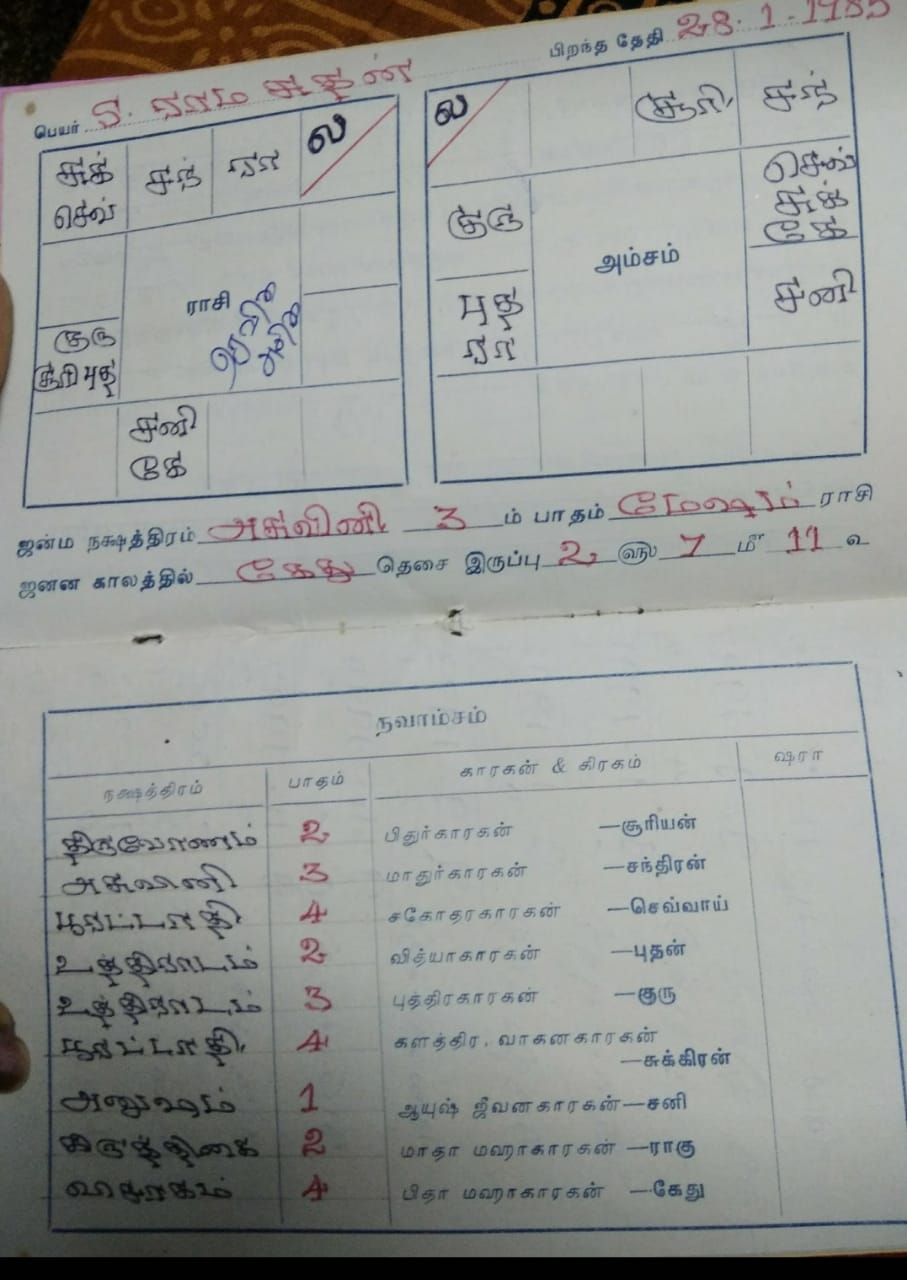 பெயர் ர. ராம சுதன்
பிறந்த தேதி 28.1.1985
சுக்
செவ்
சந்
ரா
ல
குரு
சூரி புத
ராசி
சனி
கே
ல
சூரி.
சந்
குரு
செவ்
சுக்
கே
புத
ரா
அம்சம்
சனி
ஜன்ம நக்ஷத்திரம் அசுவினி 3 ம் பாதம் மேஷம் ராசி
ஜனன காலத்தில் கேது தெசை இருப்பு 2 ௵ 7 மீ 11 உ
நவாம்சம்
நக்ஷத்திரம் பாதம் காரகன் & கிரகம் ஷரா
திருவோணம் 2 பிதுர்காரகன் —சூரியன்
அசுவினி 3 மாதுர்காரகன் —சந்திரன்
பூரட்டாதி 4 சகோதரகாரகன் —செவ்வாய்
உத்திராடம் 2 வித்யாகாரகன் —புதன்
உத்திராடம் 3 புத்திரகாரகன் —குரு
பூரட்டாதி 4 களத்திர, வாகனகாரகன்
—சுக்கிரன்
அனுஷம் 1 ஆயுஷ் ஜீவனகாரகன்—சனி
கிருத்திகை 2 மாதா மஹாகாரகன் —ராகு
விசாகம் 4 பிதா மஹாகாரகன் —கேது